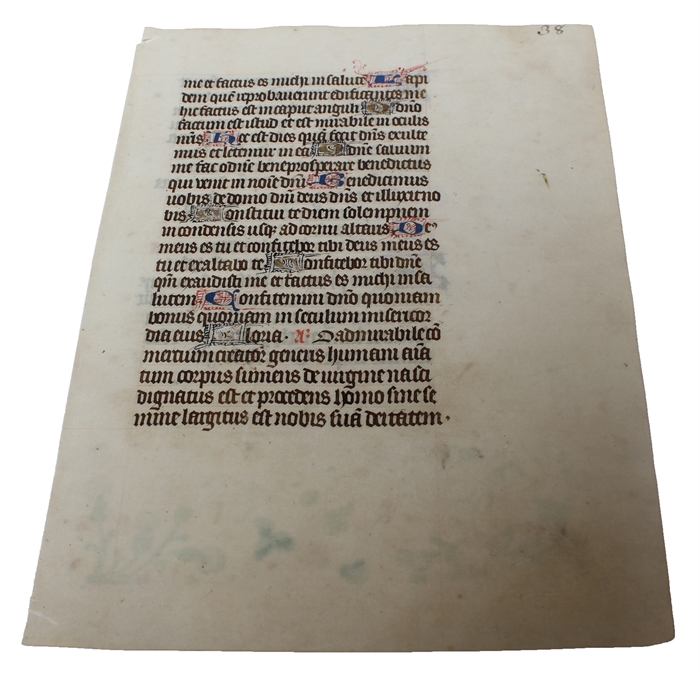 38
me et factus es michi in salutē Lapi
dem quē reprobaverunt edificantes me
hic factus est in caput anguli A dnō
factum est istud et est mirabile in oculis
nr̄is Hec est dies quā fecit dn̄s exulte
mus et letemur in ea O dn̄e salvum
me fac o dn̄e bene prosperare benedictus
qui venit in noīe dn̄i Benedicimus
vobis de domo dn̄i deus dn̄s et illuxit no
bis Constitui te diem solempnem
in condensis usq; ad cornu altaris De⁹
meus es tu et confitebor tibi deus meus es
tu et exaltabo te Confitebor tibi dn̄e
qm̄ exaudisti me et factus es michi in sa
lutem Confitemini dnō quoniam
bonus quoniam in seculum misericor
dia eius Gloria. A͞. O admirabile cō
mertium creator generis humani aīa
tum corpus sumens de virgine nasci
dignatus est et procedens homo sine se
mine largitus est nobis suā deitatem.